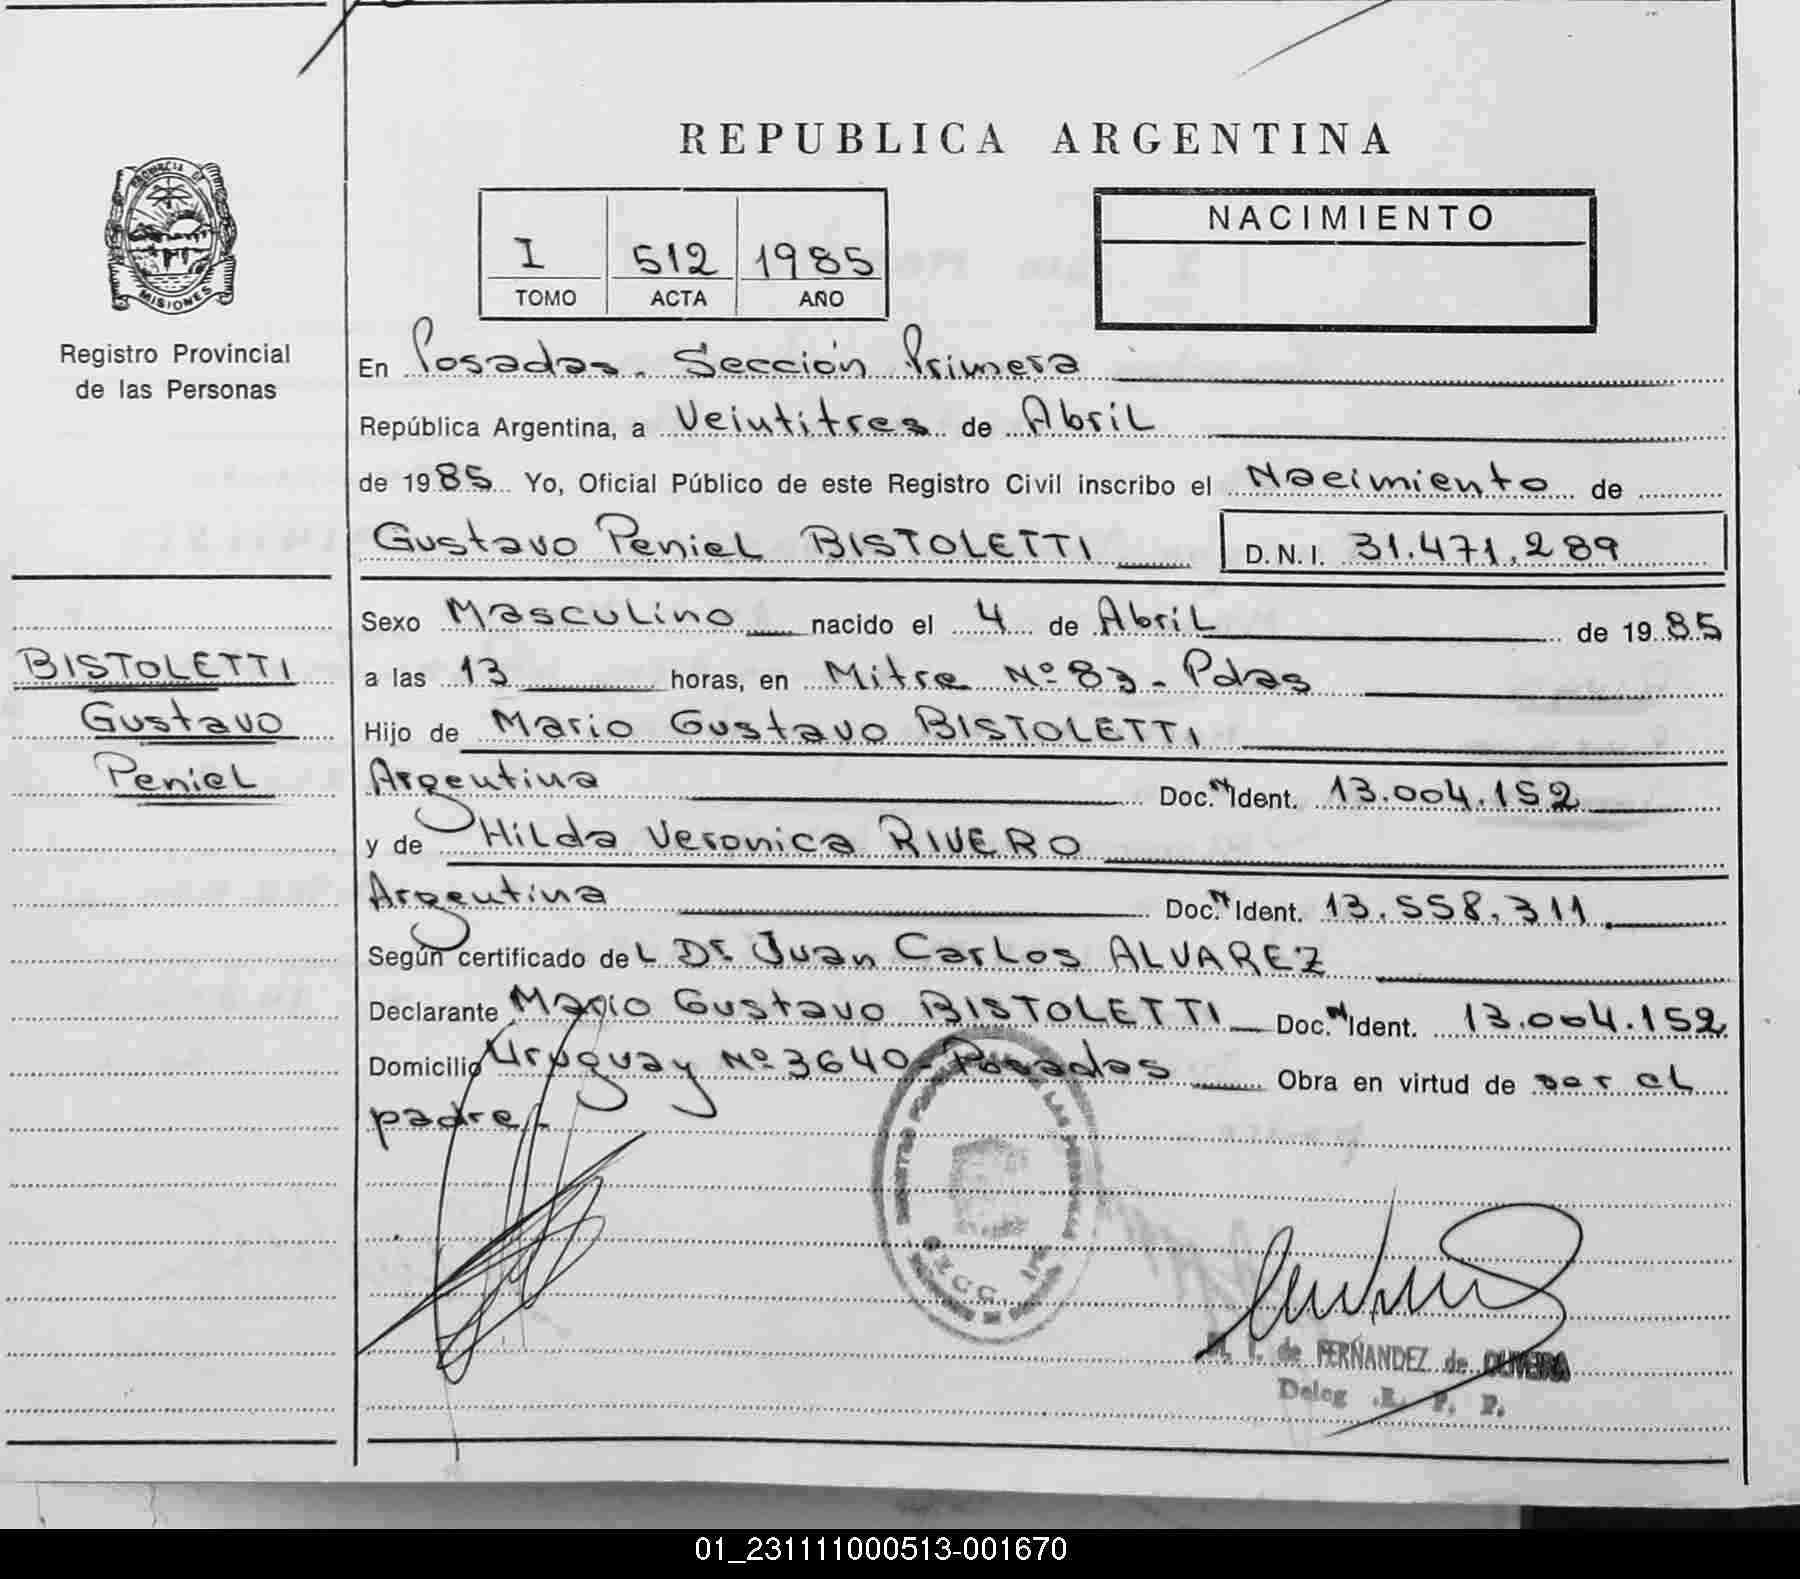 REPUBLICA ARGENTINA
PROVINCIA DE
MISIONES
Registro Provincial
de las Personas
I 512 1985
TOMO ACTA AÑO
NACIMIENTO
En Posadas. Sección Primera
República Argentina, a Veintitres de Abril
de 1985 Yo, Oficial Público de este Registro Civil inscribo el Nacimiento de
Gustavo Peniel BISTOLETTI D.N.I. 31.471.289
BISTOLETTI
Gustavo
Peniel
Sexo Masculino nacido el 4 de Abril de 1985
a las 13 horas, en Mitre Nº 83 - Pdas
Hijo de Mario Gustavo BISTOLETTI
Argentina Doc. Ident. 13.004.152
y de Hilda Veronica RIVERO
Argentina Doc. Ident. 13.558.311
Según certificado del Dr Juan Carlos ALVAREZ
Declarante Mario Gustavo BISTOLETTI Doc. Ident. 13.004.152
Domicilio Uruguay Nº 3640 - Posadas Obra en virtud de ser el
padre.-
LAS PERSONAS
de FERNANDEZ de OLIVEIRA
Deleg .R. P. P.
01_231111000513-001670